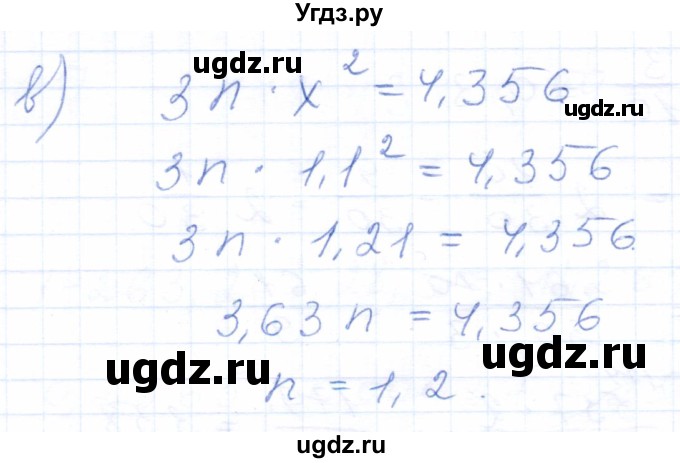 Угдз.ру
ugdz.ru
в) 3n · x² = 4,356
3n · 1,1² = 4,356
ugdz.ru
3n · 1,21 = 4,356.
3,63n = 4,356
ugdz.ru
ugdz.ru
n = 1,2.
ugdz.ru